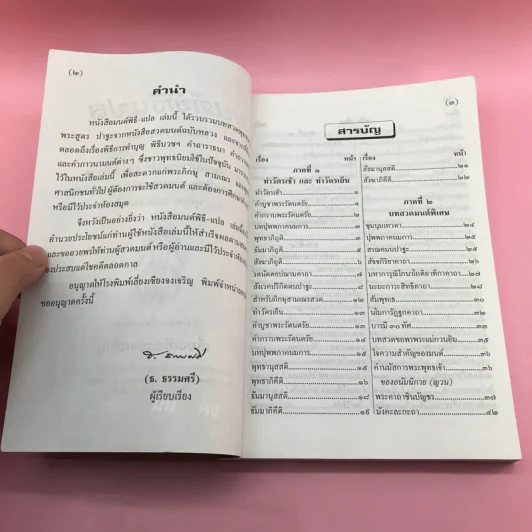 (๒)
คำนำ
หนังสือมนต์พิธี-แปล เล่มนี้ ได้รวบรวมบทสวด
พระสูตร ปาฐะจากหนังสือสวดมนต์ฉบับหลวง
ตลอดถึงเรื่องพิธีการทำบุญ พิธีบวชฯ คำอาราธนา
และคำภาวนามนต์ต่างๆ ซึ่งชาวพุทธนิยมใช้ในปัจจุบัน
ไว้ในหนังสือเล่มนี้ เพื่อสะดวกแก่พระภิกษุ สามเณร
ศาสนิกชนทั่วไป ผู้ต้องการจะใช้สวดมนต์ และต้องการศึกษา
หรือมีไว้ประจำห้องสมุด
จึงหวังเป็นอย่างยิ่งว่า หนังสือมนต์พิธี-แปล เล่มนี้
อำนวยประโยชน์แก่ท่านผู้ใช้หนังสือนี้ให้สำเร็จผล
และขออวยพรให้ท่านผู้สวดมนต์ หรือผู้อ่านและมีไว้ประจำ
ประสบแต่โชคดีตลอดกาล
อนุญาตให้โรงพิมพ์เลี่ยงเชียงจงเจริญ พิมพ์จำหน่าย
ขออนุญาตครั้งนี้
(ธ. ธรรมศรี)
ผู้เรียบเรียง
(๓)
สารบัญ
เรื่อง หน้า
ภาคที่ ๑
ทำวัตรเช้า และ ทำวัตรเย็น
ทำวัตรเช้า ๑
คำบูชาพระรัตนตรัย ๑
คำกราบพระรัตนตรัย ๑
บทปุพพภาคนมการ
พุทธาภิถุติ
ธัมมาภิถุติ
สังฆาภิถุติ ๖
รตนัตตยปณามคาถา ๗
สังเวคปริกิตตนปาฐะ ๘
สำหรับภิกษุสามเณรสวด ๑๒
ทำวัตรเย็น ๑๓
คำบูชาพระรัตนตรัย ๑๓
คำกราบพระรัตนตรัย ๑๔
บทปุพพภาคนมการ ๑๕
พุทธานุสสติ ๑๕
พุทธาภิคีติ ๑๖
ธัมมานุสสติ ๑๘
ธัมมาภิคีติ ๑๙
เรื่อง หน้า
สังฆานุสสติ ๒๑
สังฆาภิคีติ ๒๒
ภาคที่ ๒
บทสวดมนต์พิเศษ
ชุมนุมเทวดา ๒๔
ปุพพภาคนมการ ๒๕
สรณคมนปาฐะ ๒๕
สัจจกิริยาคาถา ๒๖
มหาการุณิโกนาโถติอาทิกาคาถา ๒๗
นะมะการะสิทธิคาถา ๒๘
สัมพุทเธ ๓๐
นโมการัฏฐกคาถา ๓๑
บารมี ๓๐ ทัศ ๓๓
บทสวดขอพรพระแม่กวนอิม ๓๕
ใจความสำคัญของมนต์ ๓๖
คำนมัสการพระพุทธเจ้า ๓๖
ของอนัมนิกาย (ญวน)
พระคาถาชินบัญชร ๓๗
มังคะละกะถา ๔๒